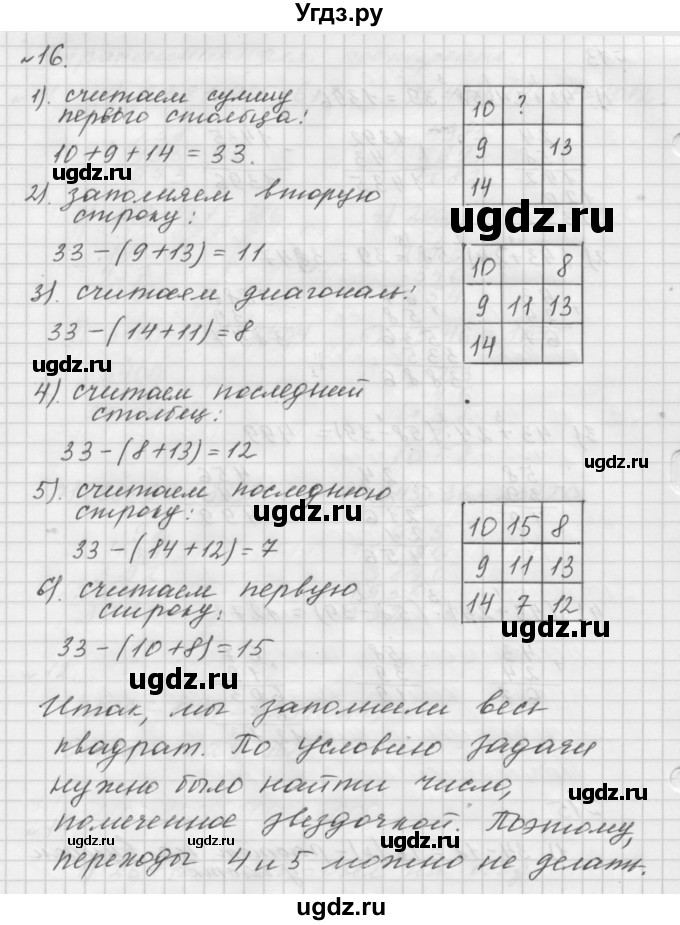 Угдз.ру
№16.
1). считаем сумму
первого столбца!
10+9+14 = 33.
10 ?
9 13
14
2). заполняем вторую
строку:
33-(9+13) = 11
3). считаем диагональ!
33-(14+11)=8
10 8
9 11 13
14
4). считаем последний
столбец:
33-(8+13)=12
5). считаем последнюю
строку:
33-(14+12)=7
10 15 8
9 11 13
14 7 12
6). считаем первую
строку:
33-(10+8)=15
Итак, мы заполнили весь
квадрат. По условию задачи
нужно было найти число,
помеченное звездочкой. Поэтому,
переходы 4 и 5 можно не делать.
ugdz.ru
ugdz.ru
ugdz.ru
ugdz.ru
ugdz.ru
ugdz.ru
ugdz.ru
ugdz.ru
ugdz.ru
ugdz.ru